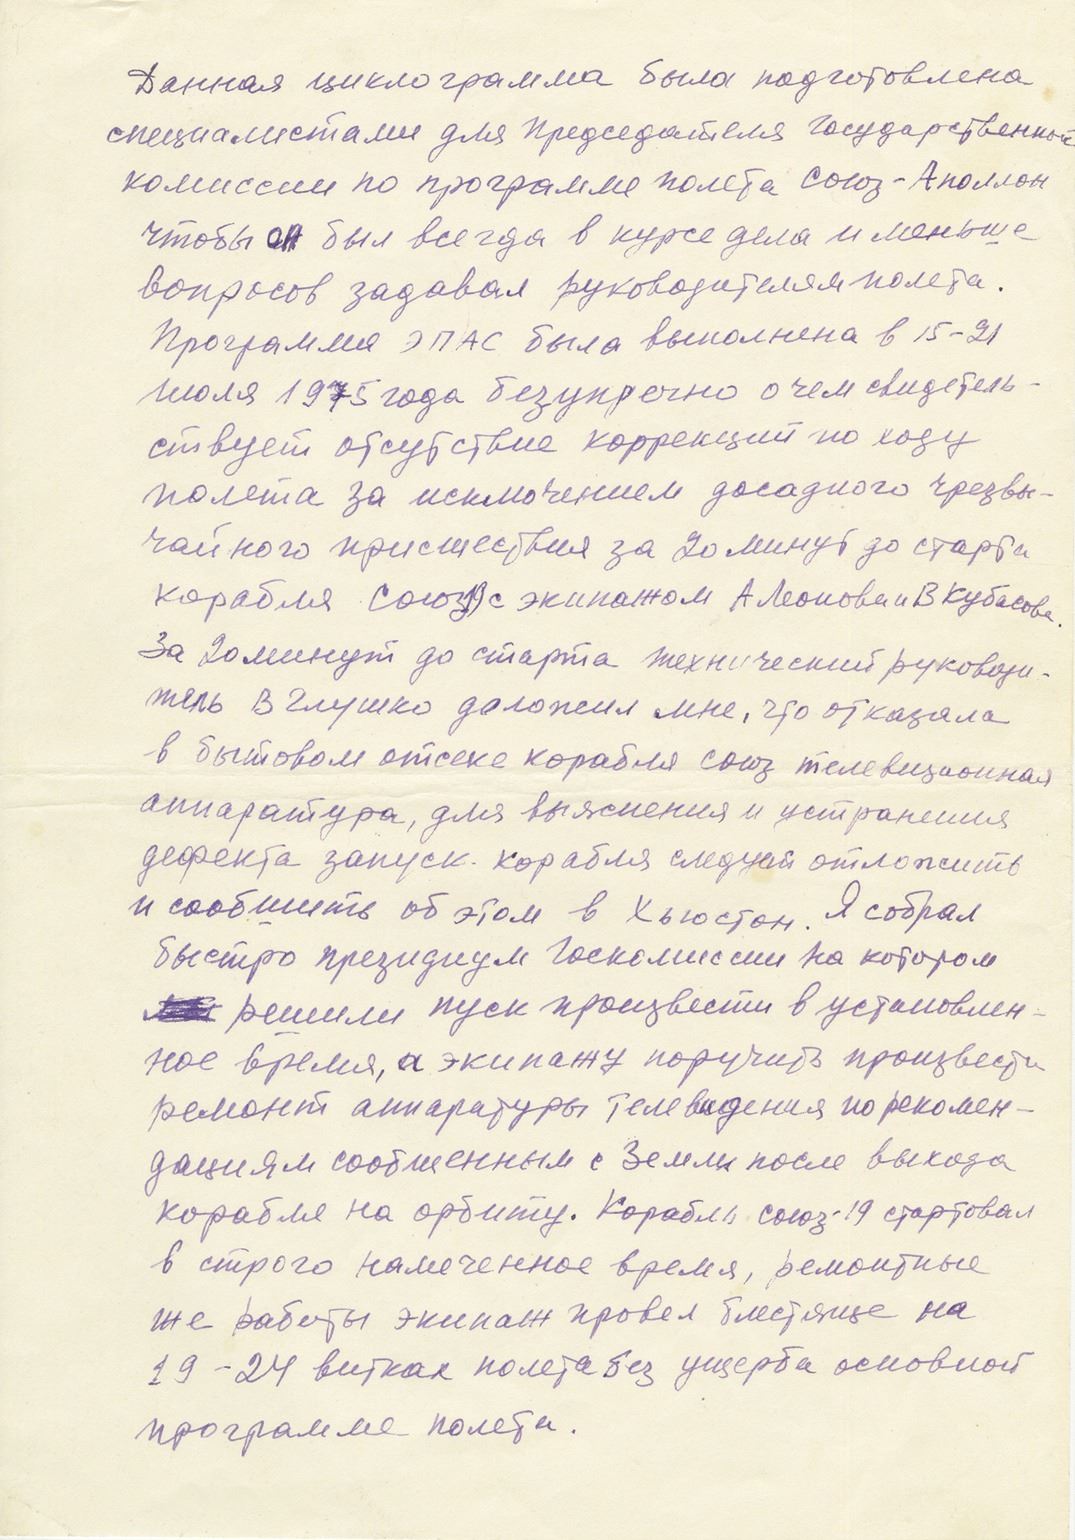 Данная циклограмма была подготовлена
специалистами для председателя Государственной
комиссии по программе полета Союз-Аполлон
чтобы он был всегда в курсе дела и меньше
вопросов задавал руководителям полета.
Программа ЭПАС была выполнена в 15-21
июля 1975 года безупречно о чем свидетель-
ствует отсутствие коррекций по ходу
полета за исключением досадного чрезвы-
чайного происшествия за 20 минут до старта
корабля Союз 19 с экипажом А Леонова и В Кубасова.
За 20 минут до старта технический руководи-
тель В Глушко доложил мне, что отказала
в бытовом отсеке корабля союз телевизионная
аппаратура, для выяснения и устранения
дефекта запуск корабля следует отложить
и сообщить об этом в Хьюстон. Я собрал
быстро президиум Госкомиссии на котором
решили пуск произвести в установлен-
ное время, а экипажу поручить произвести
ремонт аппаратуры телевидения по рекомен-
дациям сообщенным с Земли после выхода
корабля на орбиту. Корабль союз-19 стартовал
в строго намеченное время, ремонтные
же работы экипаж провел блестяще на
19-24 витках полета без ущерба основной
программе полета.